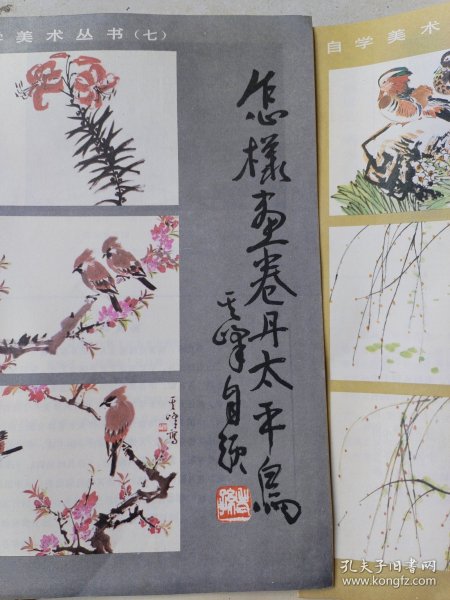 学美术丛书(七)
自学美术
怎樣画卷丹太平鳥
其峰自题
其峰寫
孔夫子旧书网
www.kongfz.com